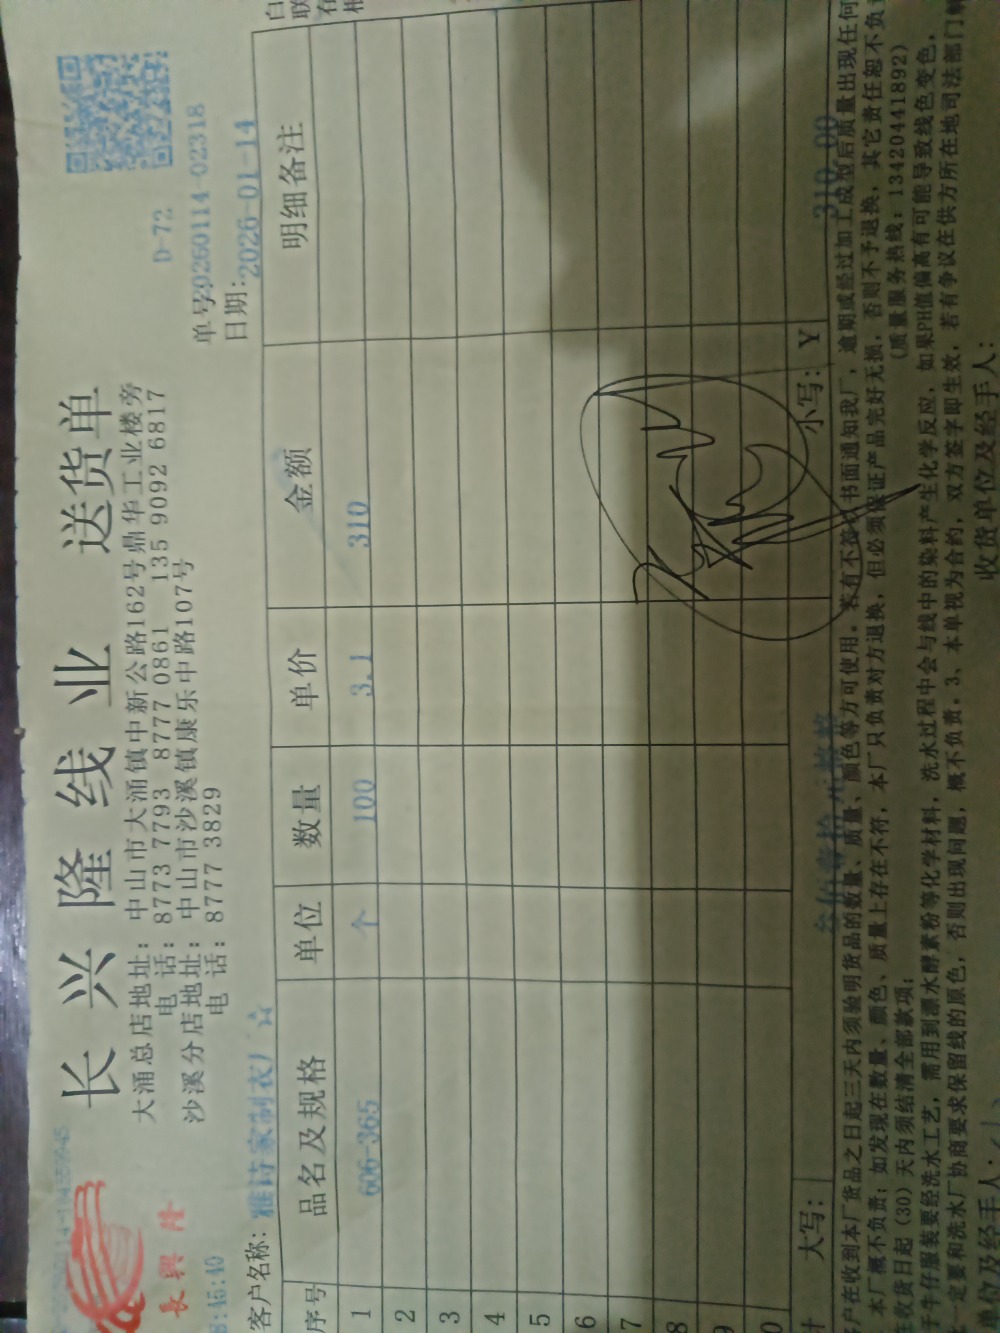 长兴隆线业 送货单
長興隆
D-72
大涌总店地址：中山市大涌镇中新公路162号鼎华工业楼旁
电 话：8773 7793 8777 0861 135 9092 6817
沙溪分店地址：中山市沙溪镇康乐中路107号
电 话：8777 3829
单号20260114-02318
:45:40
日期：2026-01-14
客户名称：雅诗家制衣厂
序号 品名及规格 单位 数量 单价 金额 明细备注
1 606-365 个 100 3.1 310
2
3
4
5
6
7
8
9
0
计 大写：叁佰壹拾元整 小写：Y 310.00
户在收到本厂货品之日起三天内须验明货品的数量、质量、颜色等方可使用。若有不符以书面通知我厂，逾期或经过加工成型后质量出现任何
本厂概不负责；如发现在数量、颜色、质量上存在不符，本厂只负责对方退换，但必须保证产品完好无损，否则不予退换，其它责任恕不负责
收货日起（30）天内须结清全部款项；
(质量服务热线：13420441892)
于牛仔服装要经洗水工艺，需用到漂水酵素粉等化学材料，洗水过程中会与线中的染料产生化学反应，如果PH值偏高有可能导致线色变色，
定要和洗水厂协商要求保留线的原色，否则出现问题，概不负责。3、本单视为合约，双方签字即生效，若有争议在供方所在地司法部门
单位及经手人：
收货单位及经手人：
白
联
存
根